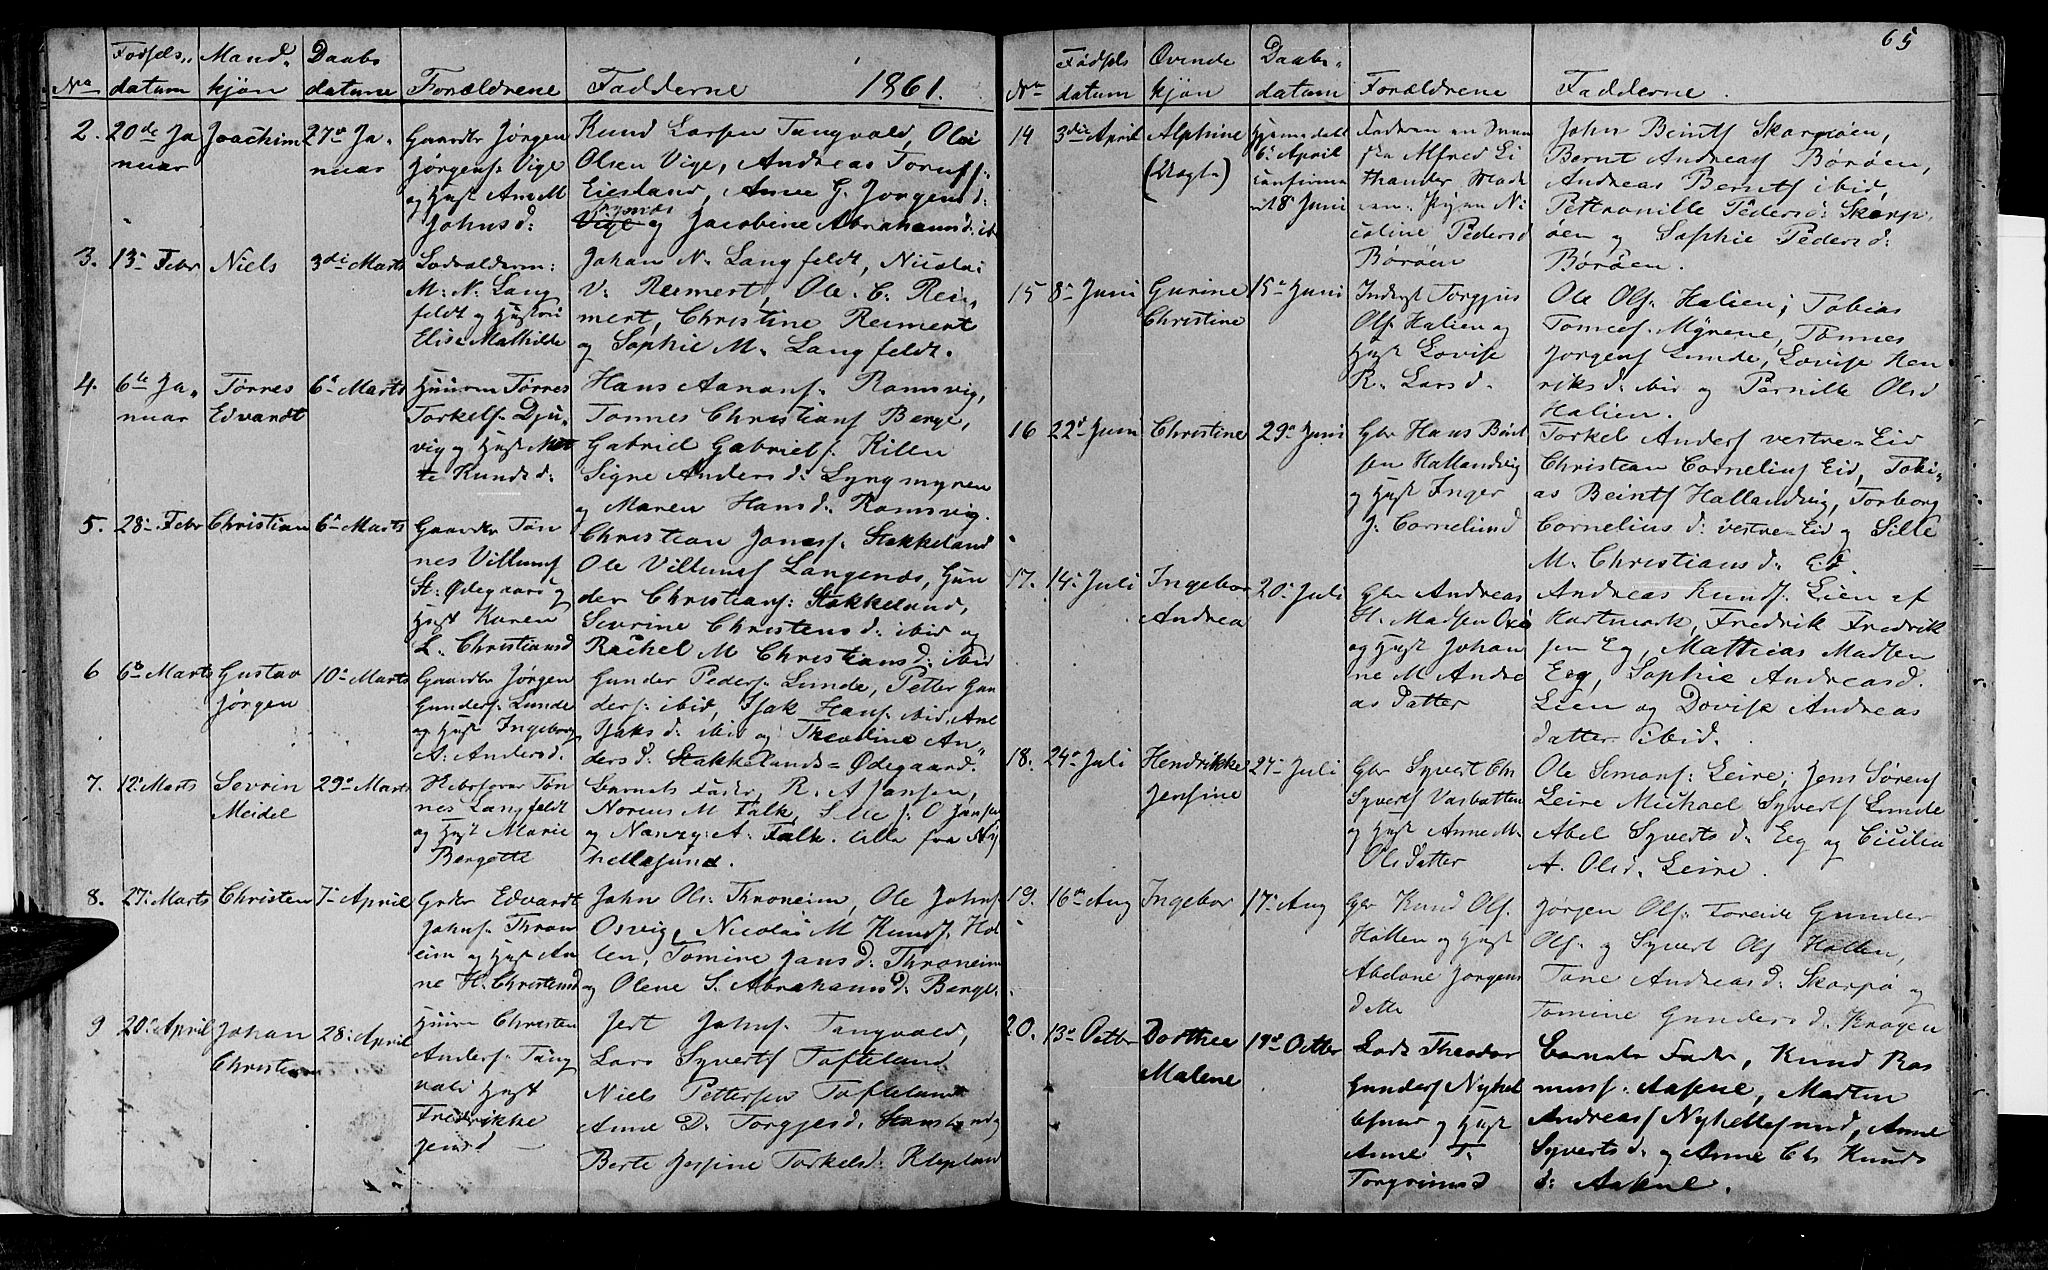 Fødsels
datum
Mand-
kjøn
Daabs
datum
No
Forældrene
Fadderne
1861.
2. 20de Ja
nuar
Joachim
27de Ja-
nuar
Gaardbr Jørgen
Jørgens. Vige
og Hust Ane M
Johnsd:
Knud Larsen Tangvald, Ole
Olsen Vige, Andreas
Eiesland, Anne G. Jørgensd:
Vige og Jacobine Abrahamsd: ibd
3. 13de Febr
Niels
3die Marts
M. N. Lang
feldt og Hustru
Elise Mathilde
Johan N. Langfeldt, Nicolai
V. Reimert, Ole C. Rei-
mert, Christine Reimert
og Sophie M. Langfeldt.
4. 6te Ja-
nuar
Tønnes
Edvardt
6te Marts
Huusm Tønnes
Torkels. Dju-
vig og Hust Met
te Knudsd:
Hans Aanons. Ramsvig,
Tønnes Christians Berge,
Gabriel Gabriels. Kilen
Signe Andersd: Lyngmyren
og Maren Hansd: Romsvig.
5. 28de Febr
Christian
6te Marts
Gaardbr Tøn
nes Villums
St. Ødegaard og
Hust Karen
L. Christiansd
Christian Jonass. Stakkeland
Ole Villums Langenæs, Gun
der Christians: Stakkeland,
Sevrine Christensd: ibid og
Rachel M Christiansd: ibid
6 6te Marts
Gustav
Jørgen
10de Marts
Gaardbr Jørgen
Gunders. Lunde
og Hust Ingeborg
A. Andersd.
Gunder Peders. Lunde, Petter Gun
ders. ibid, Isak Hans. ibid, Ane
Isaksd: ibid og Theodine An-
dersd: Stakkelands-Ødegaard.
7. 12te Marts
Sevrin
Meidel
29de Marts
Tøn
nes Langfeldt
og Hust Marie
Bergette
Barnets Fader, R. A Jansen,
Noreus M Falk, Sille J: O Jansen
og Nancy A. Falk. Alle fra Ny
hellesund.
8. 27de Marts
Christen
7de April
Grbr Edvardt
Johns. Thron
eim og Hust An
ne H. Christensd
John Ols: Throneim, Ole Johns.
Osvig, Nicolai M Knuds. Hol
len, Tomine Jansd: Throneim
og Olene S. Abrahamsd: Berge.
9 20de April
Johan
Christian
28de April
Huusm Christen
Anders. Tang
vald Hust
Fredrikke
Jensd
Jert Johns. Tangvald,
Lars Syverts Tofteland
Niels Pettersen Tofteland
Anne D. Torgjesd:
Berte Jessine Torkelsd: Klepland
65
No
Fødsels
datum
Qvinde
kjøn
Daabs-
datum
Forældrene
Fadderne.
14 3die April
Alphine
(Uægte)
Hjemmedøbt
6te April
confirme
ret 8 Juni
Faderen en Svens
ske Alfred Li
thander Mode
ren: Pigen Ni
coline Pedersd
Børøen
John Beints Skarpøen,
Bernt Andreass Børøen,
Andreas Bernts ibid,
Pettronille Pedersd: Skarp-
øen og Sophie Pedersd:
Børøen.
15 8de Juni
Gurine
Christine
15de Juni
Inderst Torgjus
Ols. Halien og
Hust Lovise
R. Larsd.
Ole Ols. Halien, Tobias
Tomees. Myrene, Tønnes
Jørgens Lunde, Lovise Hen
riksd: ibid og Pernille Olsd
Halien.
16 22de Juni
Christine
29de Juni
Gbr Hans Beint
sen Hallandvig
og Hust Inger
J. Cornelusd
Torkel Anders vestre-Eid
Christian Cornelius Eid, Tobi-
as Beints Hallandvig, Torborg
Corneliusd: vestre-Eid og Sille
M. Christiansd: Eid.
17. 14de Juli
Ingebor
Andrea
20de Juli
Gbr Andreas
H. Madsen
og Hust Johan
ne M. Andre
as Datter
Andreas Knuds. Lien af
Hartmark, Fredrik Fredrik
sen Eg, Mathias Madsen
Eeg, Sophie Andreasd.
Lien og Dovise Andreas
datter ibid.
18. 24de Juli
Hendrikke
Jensine
27de Juli
Gbr Syvert Chr
Syverts Vasbatten
og Hust Anne M.
Ols Datter
Ole Simons: Leire, Jens Sørens
Leire Michael Syverts Lunde
Abel Syvertsd: Eeg og Cicilie
A. Olsd. Leire.
19. 16de Aug
Ingebor
17de Aug
Gbr Knud Ols.
Hatten og Hust
Abelone Jørgens
datter
Jørgen Ols: Foreide Gunder
Ols. og Syvert Ols Hallen,
Tone Andreasd: Skarpø og
Tomine Gundersd: Kragen
20. 13de Octbr
Dorthee
Malene
19de Octbr
Lods Theodor
Gunders Nyhel
lesund og Hust
Anne T.
Torgrimsd
Barnets Fader, Knud Ras
muss. Aasene, Martin
Andreass Nyhellesund, Anne
Syvertsd: og Anne Ch Knuds
d: Aasene.